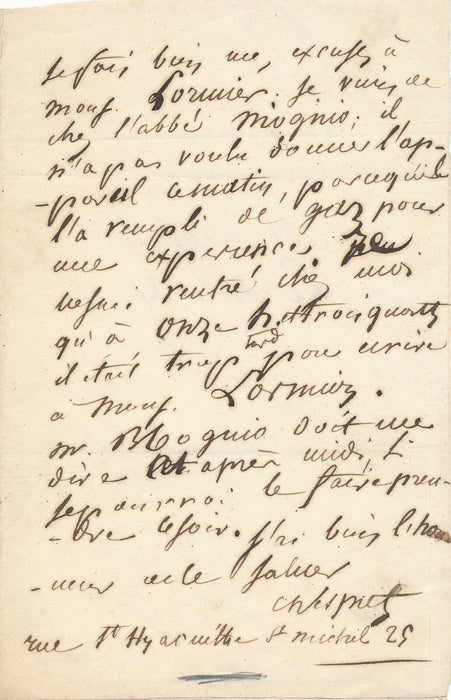 je fais bien me, excuses à
mons. Lormier. je viens de
chez l'abbé Mognio; il
n'a pas voulu donner l'ap-
-pareil ce matin, parcequ'il
l'a rempli de gaz pour
une experience
ne suis rentré chez moi
qu'à onze h. et trois quarts
il était trop tard pour ecrire
à Mons. Lormier.
mr. Mognio doit me
dire apres midi, si
je pourrai le faire pren-
-dre ce soir. j'ai bien l'hon
-neur de le saluer

rue St Hyacinthe St michel 25